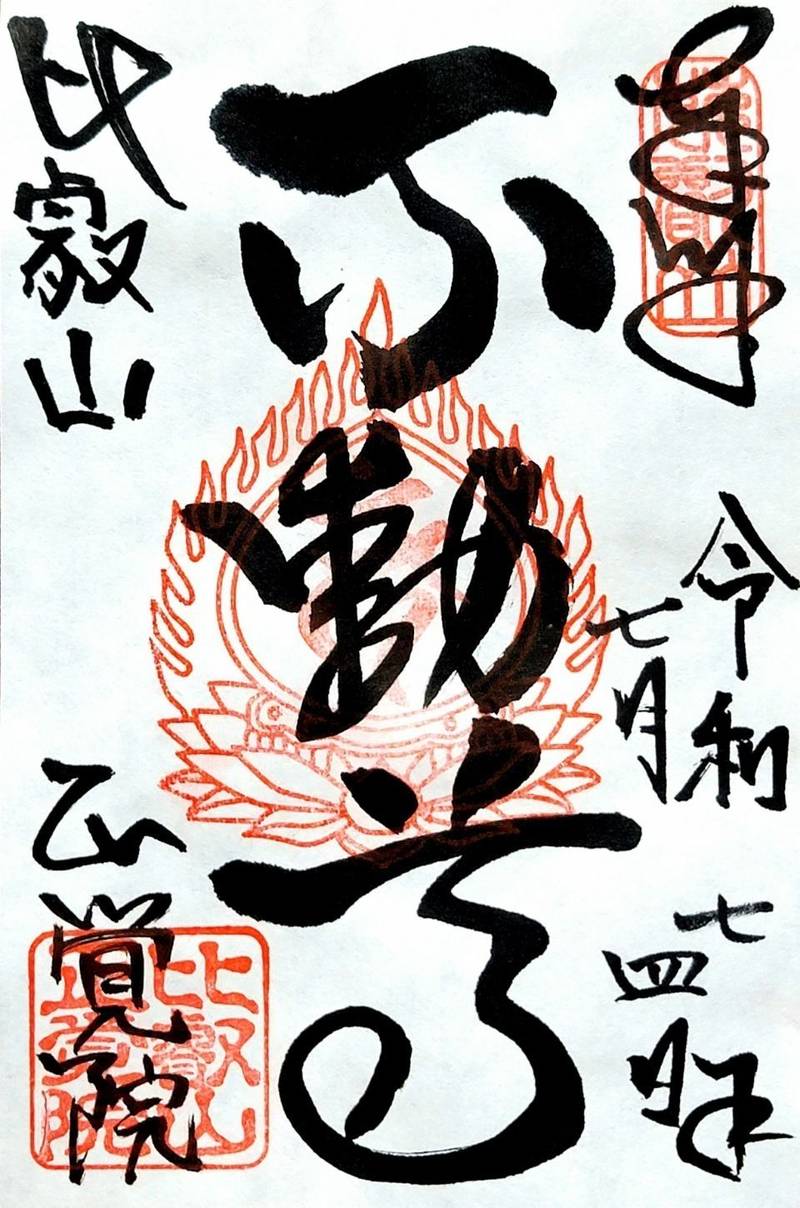 奉拝
令和七年
七月四日
不動尊
比叡山
正覚院
比叡山
正覚院